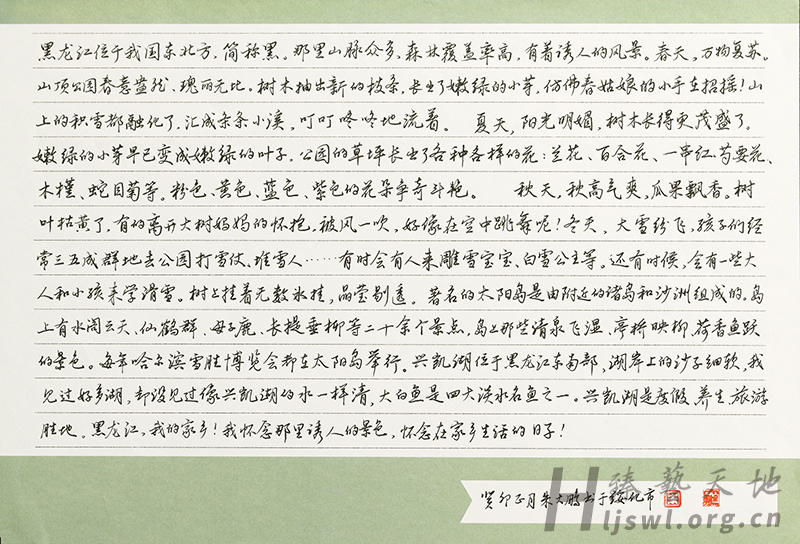 黑龙江位于我国东北方，简称黑。那里山脉众多，森林覆盖率高，有着诱人的风景。春天，万物复苏。
山顶公园春意盎然，瑰丽无比。树木抽出新的枝条，长出了嫩绿的小芽，仿佛春姑娘的小手在招摇！山
上的积雪都融化了，汇成条条小溪，叮叮咚咚地流着。 夏天，阳光明媚，树木长得更茂盛了。
嫩绿的小芽早已变成嫩绿的叶子，公园的草坪长出了各种各样的花：兰花、百合花、一串红、芍要花、
木槿、蛇目菊等。粉色、黄色、蓝色、紫色的花朵争奇斗艳。 秋天，秋高气爽，瓜果飘香。树
叶枯黄了，有的离开大树妈妈的怀抱，被风一吹，好像在空中跳舞呢！冬天，大雪纷飞，孩子们经
常三五成群地去公园打雪仗、堆雪人……有时会有人来雕雪宝宝、白雪公主等。还有时候，会有一些大
人和小孩来学滑雪。树上挂着无数冰挂，晶莹剔透。著名的太阳岛是由附近的诸岛和沙洲组成的，岛
上有水阁云天、仙鹤群、母子鹿、长堤垂柳等二十余个景点，岛上那些清泉飞瀑、亭桥映柳、荷香鱼跃
的景色。每年哈尔滨雪雕博览会都在太阳岛举行。兴凯湖位于黑龙江东南部，湖岸上的沙子细软，我
见过好多湖，却没见过像兴凯湖的水一样清，大白鱼是四大淡水名鱼之一。兴凯湖是度假、养生、旅游
胜地。黑龙江，我的家乡！我怀念那里诱人的景色，怀念在家乡生活的日子！
癸卯正月朱大鹏书于绥化市
臻艺天地
Hljswl.org.cn